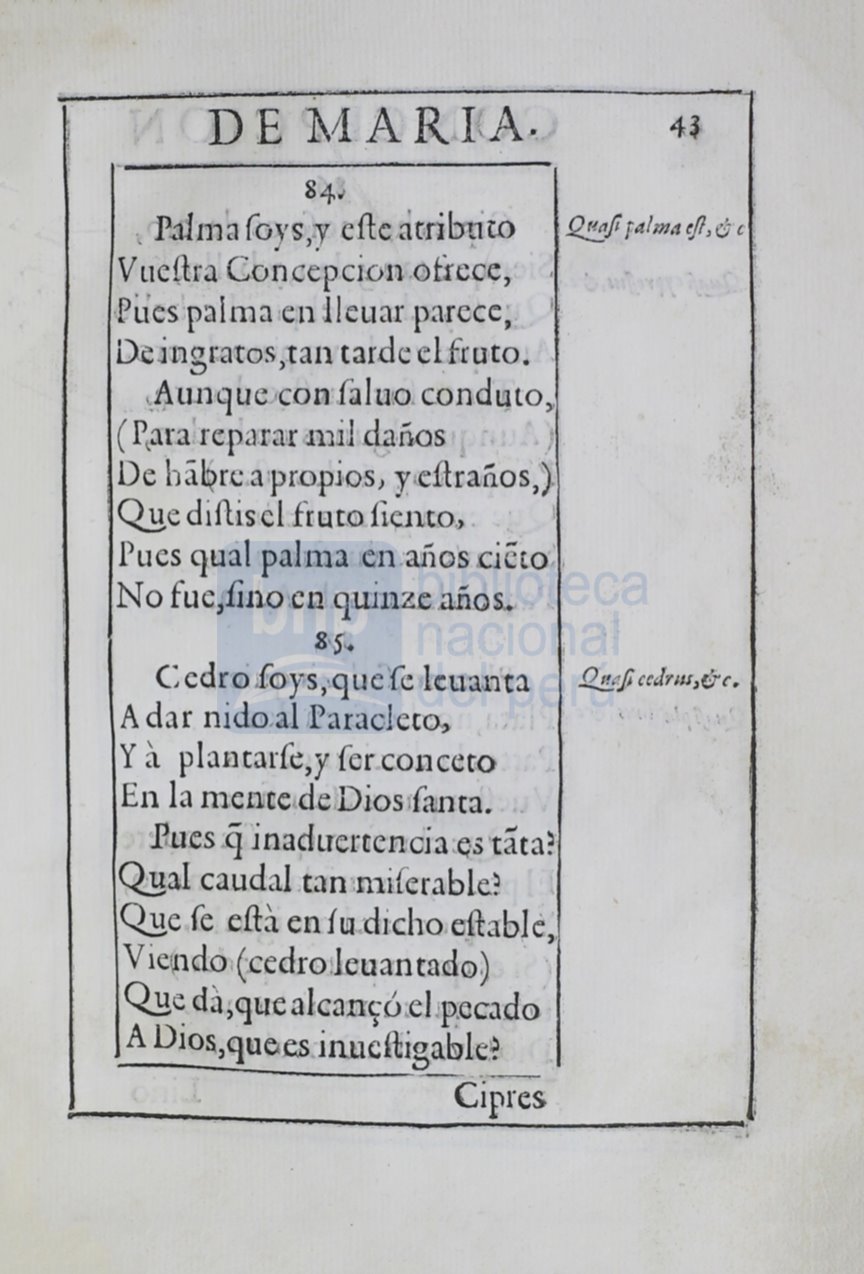 DE MARIA.
43
84.
Palma ſoys, y eſte atributo
Quaſi palma eſt, & c
Vueſtra Concepcion ofrece,
Pues palma en lleuar parece,
De ingratos, tan tarde el fruto.
Aunque con ſaluo conduto,
(Para reparar mil daños
De hãbre a propios, y eſtraños,)
Que diſtis el fruto ſiento,
Pues qual palma en años ciẽto
No fue, ſino en quinze años.
85.
Cedro ſoys, que ſe leuanta
Quaſi cedrus, &c.
A dar nido al Paracleto,
Y à plantarſe, y ſer conceto
En la mente de Dios ſanta.
Pues q̃ inaduertencia es tãta?
Qual caudal tan miſerable?
Que ſe eſtà en ſu dicho eſtable,
Viendo (cedro leuantado)
Que dà, que alcançó el pecado
A Dios, que es inueſtigable?
Cipres
bnp biblioteca
nacional
del perú